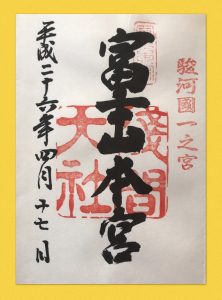 駿河國一之宮
富士山本宮
淺間
大社
平成二十六年四月十七日